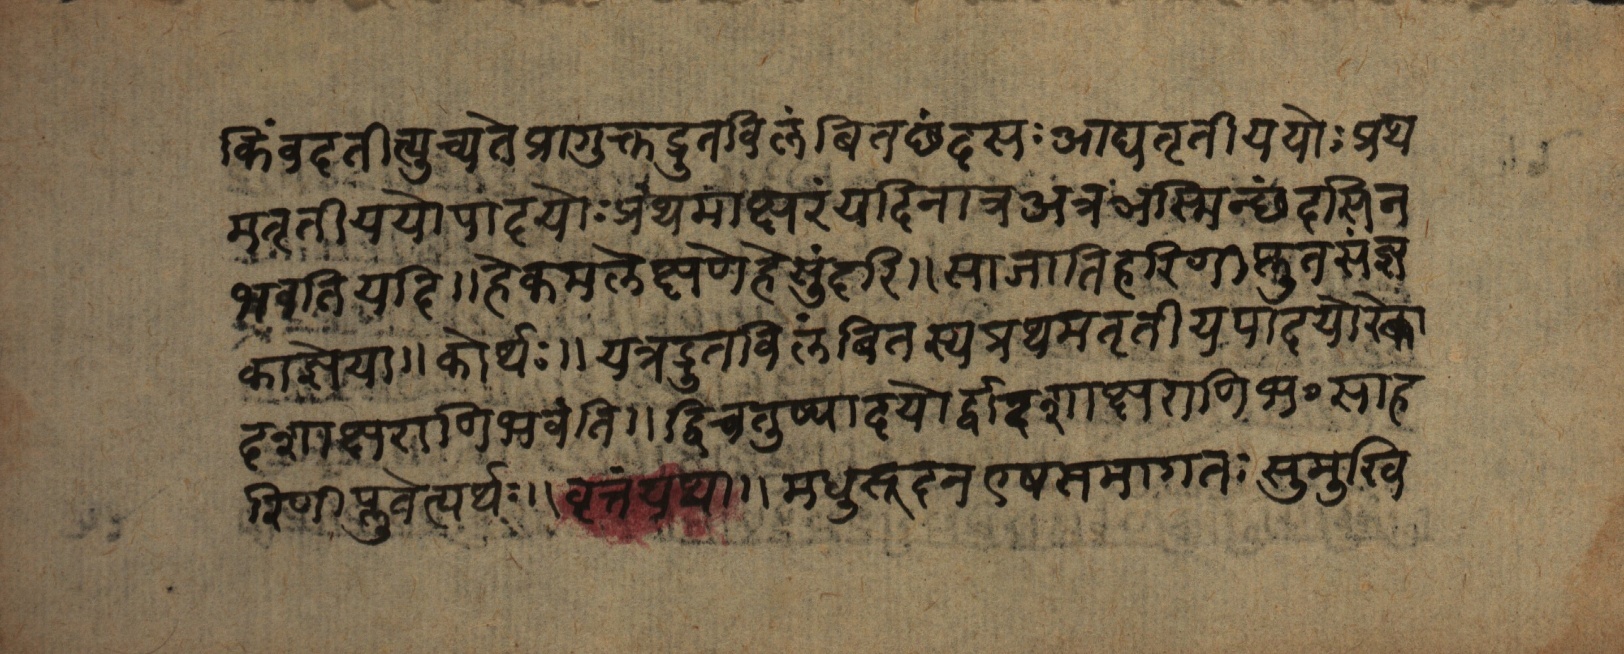 किंवदतीत्युच्यते प्रागुक्तद्रुतविलंबितछंदसः आद्यतृतीययोः प्रथ
मतृतीययो पादयोः प्रथमाक्षरं यदि नात्र अत्र अस्मिन्छंदसि न
भवति यदि ॥ हे कमलेक्षणे हे सुंदरि ॥ सा जाति हरिणीप्लुतसंज्ञ
का ज्ञेया ॥ कोर्थः ॥ यत्र द्रुतविलंबितस्य प्रथमतृतीयपादयोरेका
दशाक्षराणि भवंति ॥ द्विचतुष्पादयोर्द्वादशाक्षराणि भ॰ सा ह
रिणीप्लुवेत्यर्थः ॥ वृत्तं यथा ॥ मधुसूदन एष समागतः सुमुखि